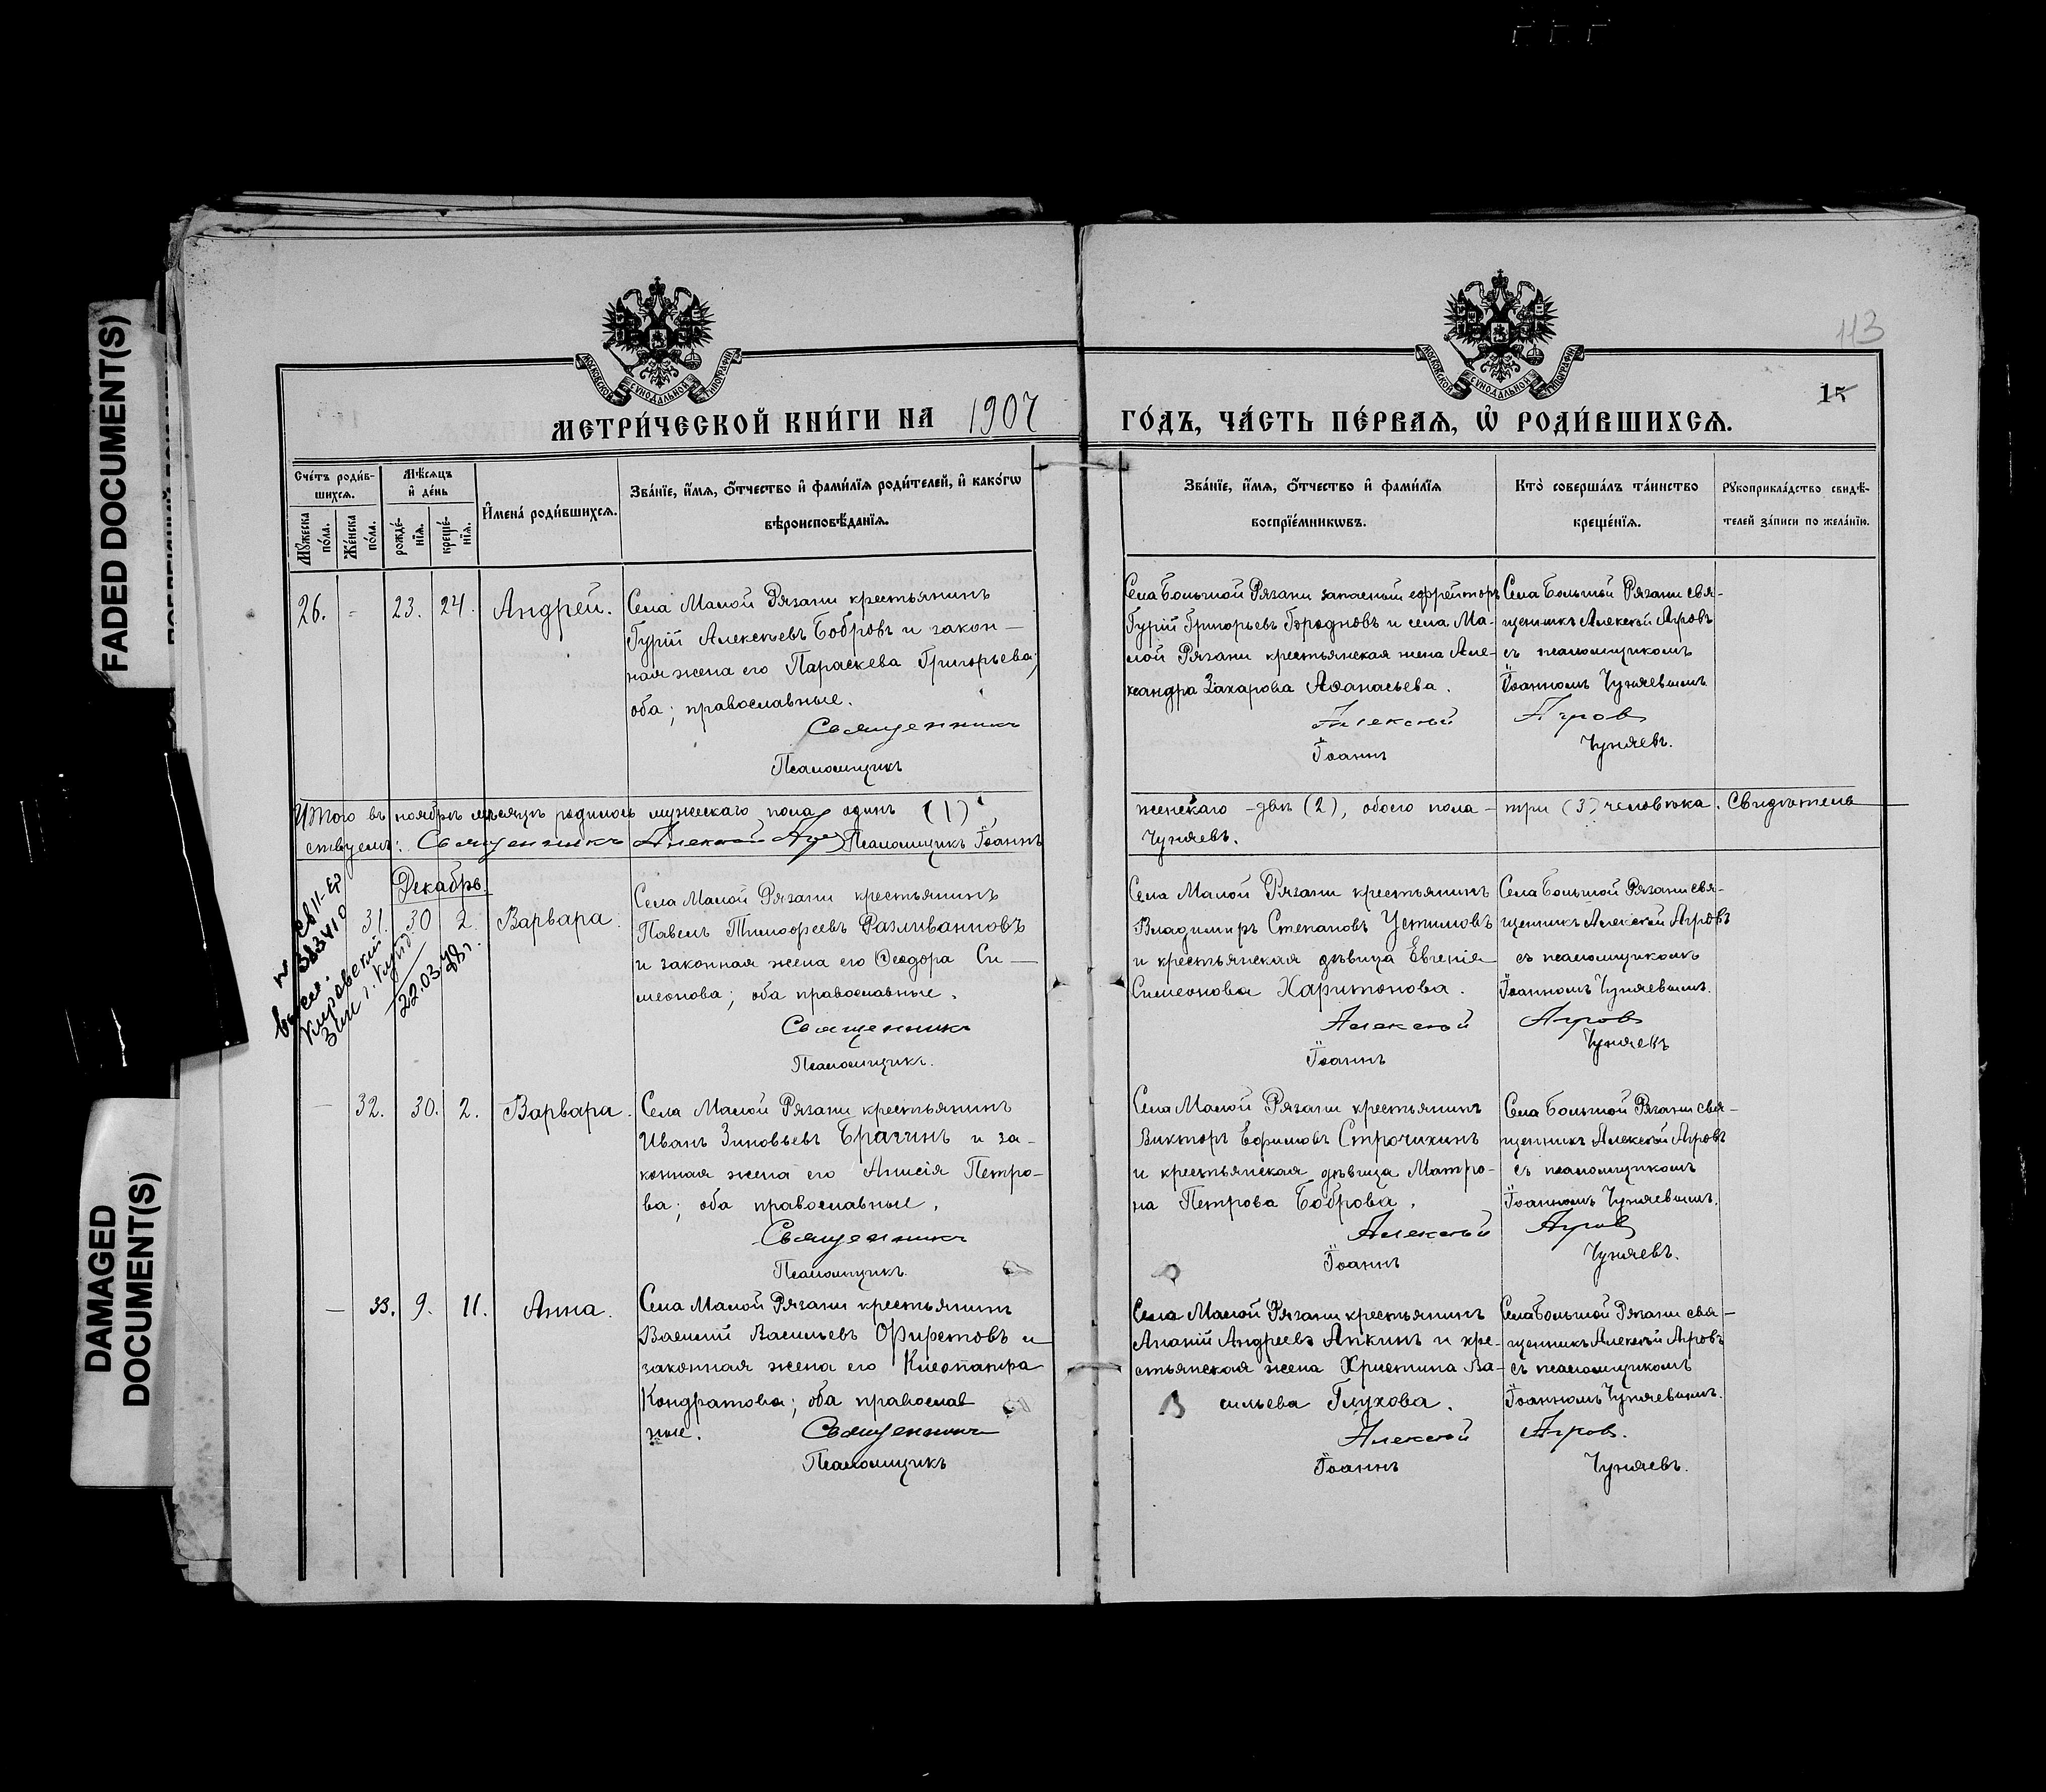 FADED DOCUMENT(S)
DAMAGED
DOCUMENT(S)
113
15
МОСКОВСКОЙ СѴНОДАЛЬНОЙ ТИПОГРАФІИ
МОСКОВСКОЙ СѴНОДАЛЬНОЙ ТИПОГРАФІИ
МЕТРИ́ЧЕСКОЙ КНИ́ГИ НА 1907 ГО́ДЪ, ЧА́СТЬ ПЕ́РВАѦ, Ѡ҆ РОДИ́ВШИХСѦ.
Сче́тъ роди́в-
шихсѧ.
Мꙋ́жеска по́ла.
Же́нска по́ла.
Мѣ́сѧцъ и҆ де́нь
рожде́-нїѧ.
креще́-нїѧ.
И҆мена̀ роди́вшихсѧ.
Зва́нїе, и҆́мѧ, ѻ҆́тчество и҆ фами́лїѧ роди́телей, и҆ како́гѡ
вѣроисповѣ́данїѧ.
Зва́нїе, и҆́мѧ, ѻ҆́тчество и҆ фами́лїѧ
воспрїе́мникѡвъ.
Кто̀ соверша́лъ та́инство
креще́нїѧ.
Рꙋкоприкла́дство свидѣ́-
телей за́писи по жела́нїю.
26. = 23. 24. Андрей.
Села Малой Рязани крестьянинъ
Гурій Алексѣевъ Бобровъ и закон—
ная жена его Параскева Григорьева;
оба; православные.
Священникъ
Псаломщикъ
Села Большой Рязани запасный ефрейторъ
Гурій Григорьевъ Городновъ и села Ма-
лой Рязани крестьянская жена Але-
ксандра Захарова Аѳанасьева.
Алексѣй
Іоаннъ
Села Большой Рязани свя-
щенникъ Алексѣй Агровъ
съ псаломщикомъ
Іоанномъ Чуняевымъ
Агровъ
Чуняевъ.
Итого въ ноябрѣ мѣсяцѣ родилось мужескаго пола, одинъ (1), женскаго —двѣ (2), обоего пола — три (3) человѣка. Свидѣтель
ствуемъ: Священникъ Алексѣй Агровъ Псаломщикъ Іоаннъ Чуняевъ.
Декабрь.
св II-ЕР
№ 383410
22.03.48 г.
31. 30 2. Варвара.
Села Малой Рязани крестьянинъ
Павелъ Тимоѳеевъ Разливановъ
и законная жена его Ѳеодора Си—
меонова; оба православные.
Священникъ
Псаломщикъ.
Села Малой Рязани крестьянинъ
Владимиръ Степановъ Устимовъ
и крестьянская дѣвица Евгенія
Симеонова Харитонова.
Алексѣй
Іоаннъ
Села Большой Рязани свя-
щенникъ Алексѣй Агровъ
съ псаломщикомъ
Іоанномъ Чуняевымъ.
Агровъ
Чуняевъ
— 32. 30. 2. Варвара.
Села Малой Рязани крестьянинъ
Иванъ Зиновьевъ Брагинъ и за-
конная жена его Анисія Петро-
ва; оба православные.
Священникъ
Псаломщикъ.
Села Малой Рязани крестьянинъ
Викторъ Ефимовъ Строчихинъ
и крестьянская дѣвица Матро-
на Петрова Боброва.
Алексѣй
Іоаннъ
Села Большой Рязани свя—
щенникъ Алексѣй Агровъ
съ псаломщикомъ
Іоанномъ Чуняевымъ.
Агровъ
Чуняевъ.
— 33. 9. 11. Анна.
Села Малой Рязани крестьянинъ
Василій Васильевъ Фирстовъ и
законная жена его Клеопатра
Кондратова; оба православ
ные.
Священникъ
Псаломщикъ
Села Малой Рязани крестьянинъ
Ананій Андреевъ Апкинъ и кре-
стьянская жена Христина Ва-
сильева Глухова.
Алексѣй
Іоаннъ
Села Большой Рязани свя—
щенникъ Алексѣй Агровъ
съ псаломщикомъ
Іоанномъ Чуняевымъ.
Агровъ.
Чуняевъ.